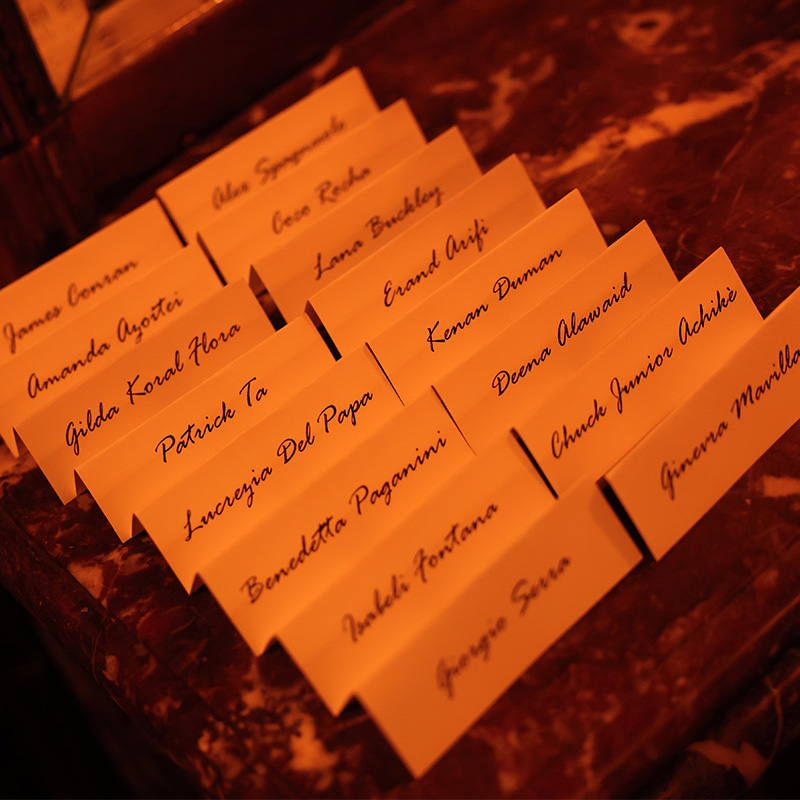 James Conran
Amanda Azoitei
Gilda Koral Flora
Patrick Ta
Lucrezia Del Papa
Benedetta Paganini
Isabeli Fontana
Giorgio Serra
Alex
Coco Rocha
Lana Buckley
Erand Arifi
Kenan Duman
Deena Alawaid
Chuck Junior Achikè
Ginevra Mavilla